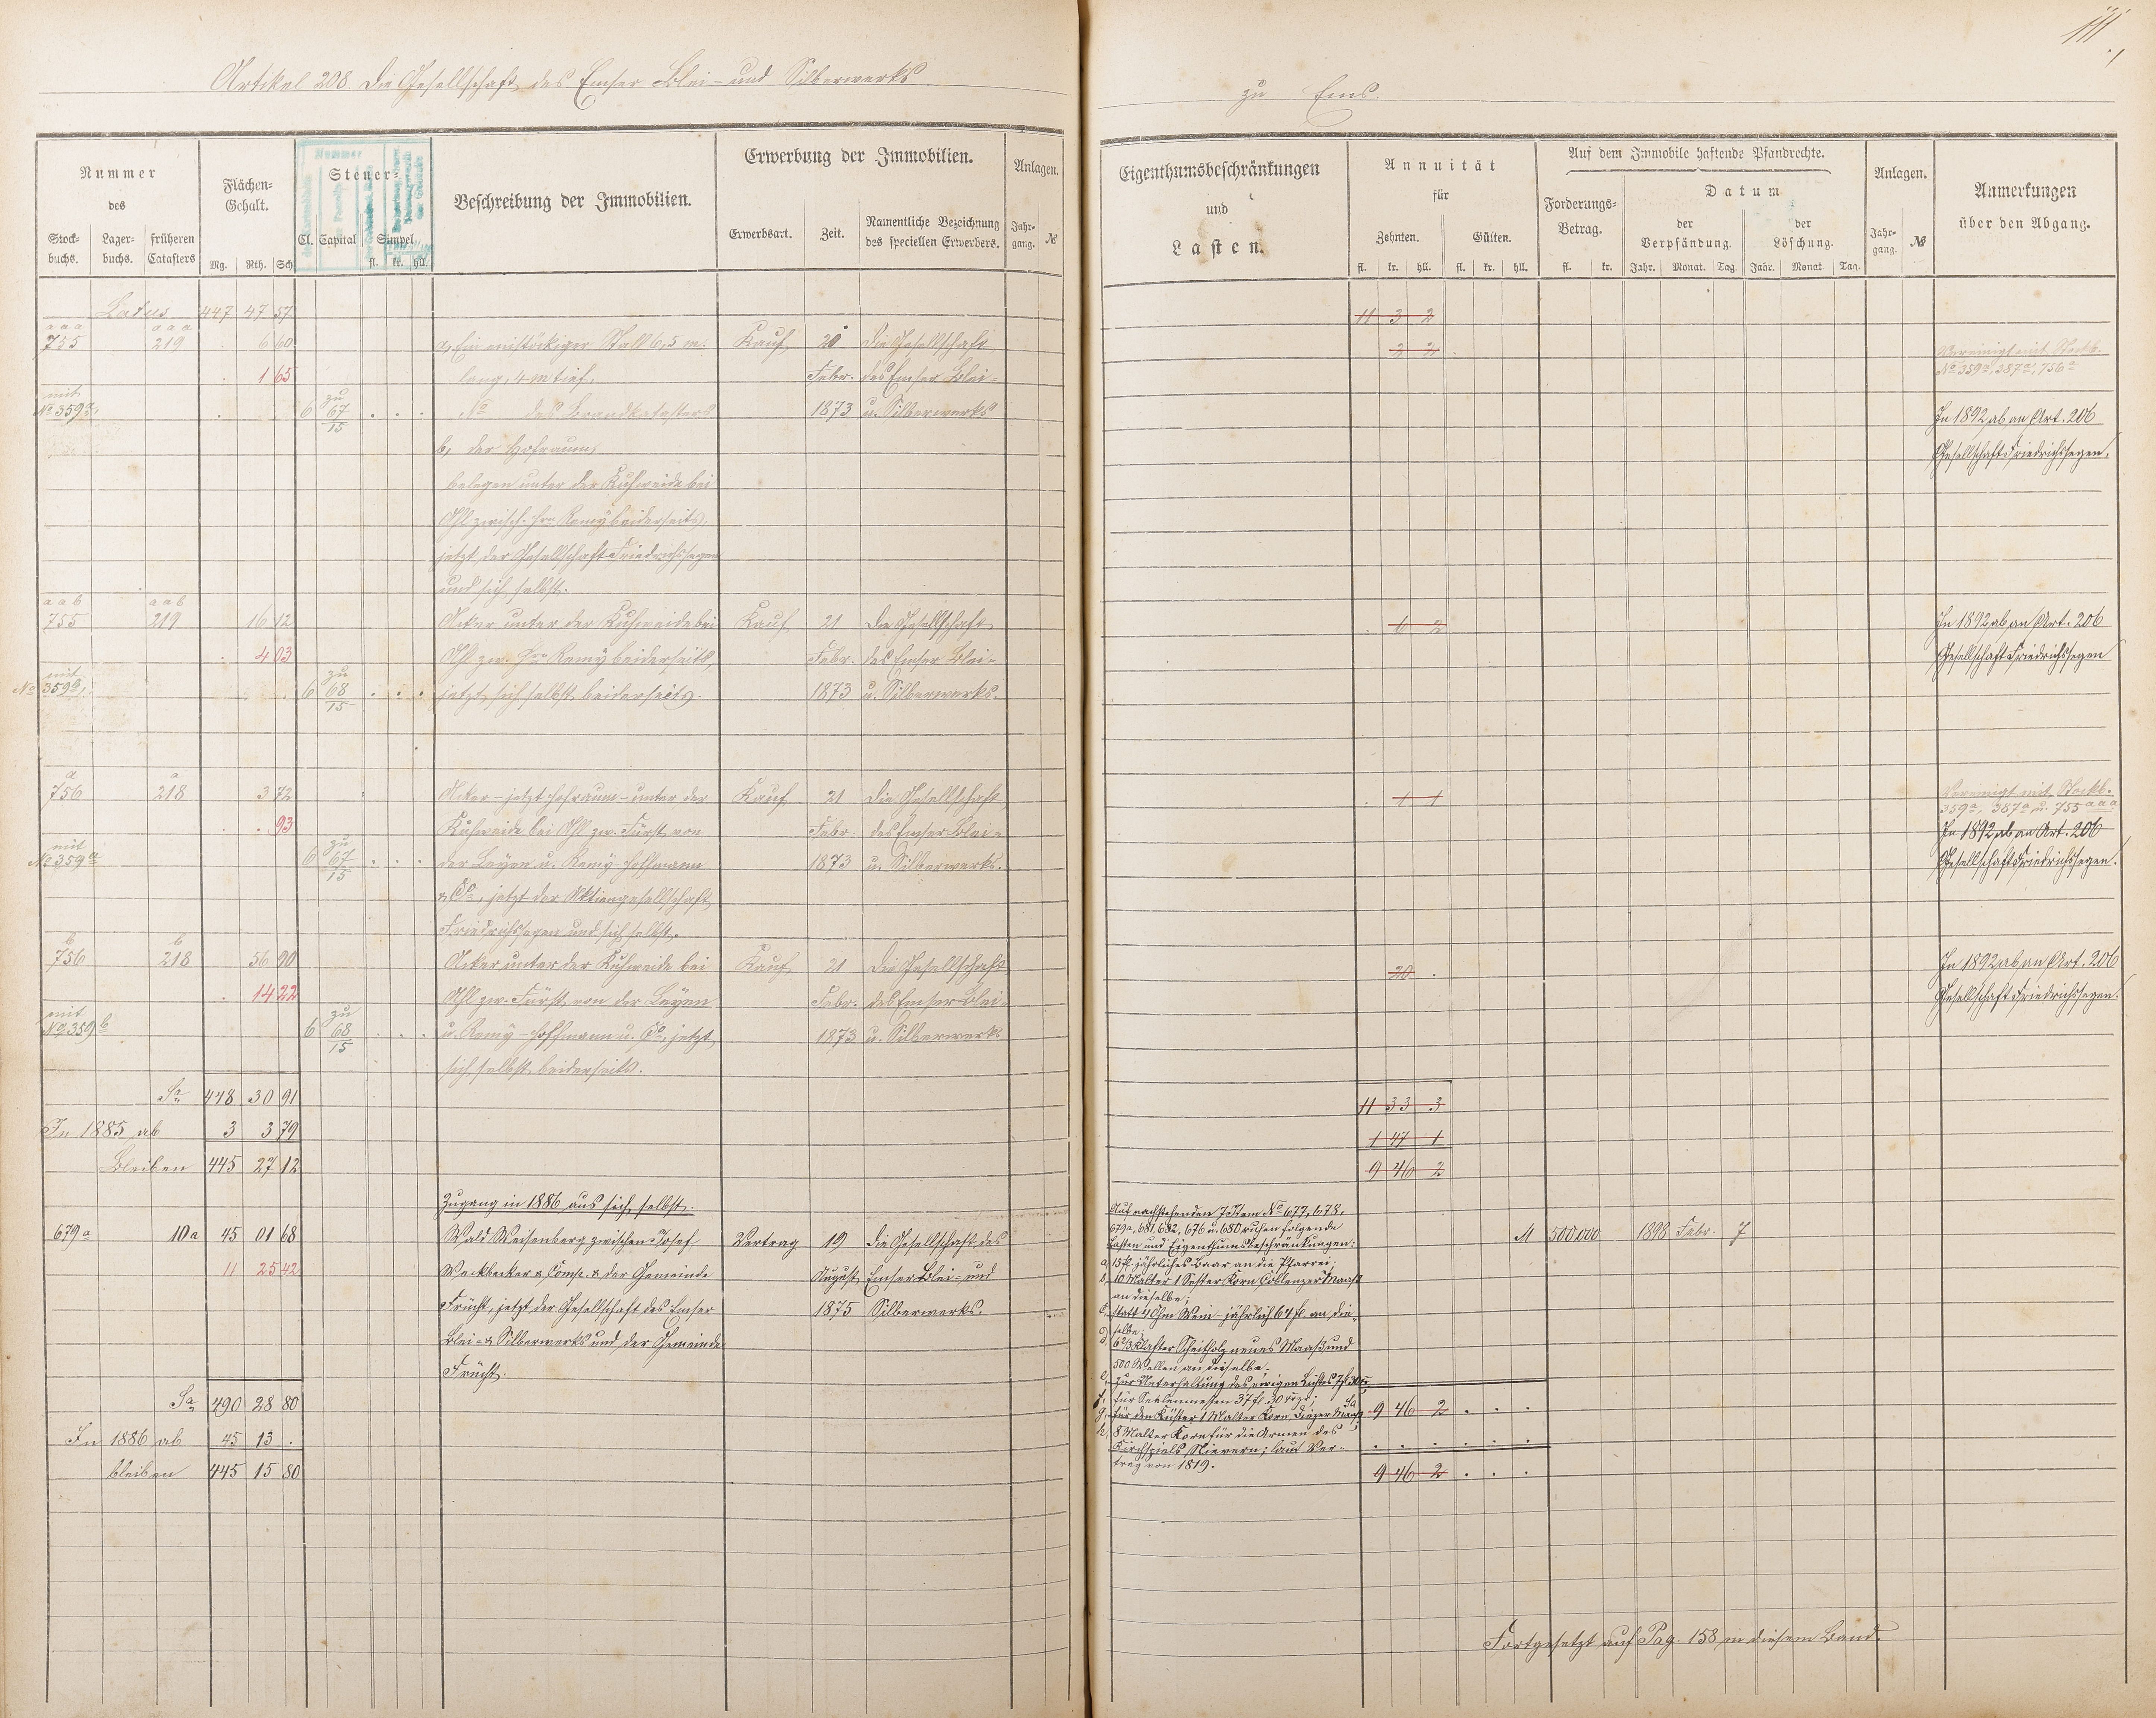 111.
Artikel 208. Die Gesellschaft des Emser Blei- und Silberwerks
zu Ems.
Nummer
des
Stock-
buchs.
Lager-
buchs.
früheren
Catasters
Flächen-
Gehalt.
Mg. Rth. Sch
Nummer
Steuer-
Cl. Capital Simpel
fl. kr. hll.
Beschreibung der Immobilien.
Erwerbung der Immobilien.
Erwerbsart.
Zeit.
Namentliche Bezeichnung
des speciellen Erwerbers.
Anlagen.
Jahr-
gang.
№
Eigenthumsbeschränkungen
und
Lasten.
Annuität
für
Zehnten.
Gülten.
fl. kr. hll. fl. kr. hll.
Auf dem Immobile haftende Pfandrechte.
Forderungs-
Betrag.
fl. kr.
Datum
der
Verpfändung.
der
Löschung.
Jahr. Monat. Tag. Jahr. Monat Tag.
Anlagen.
Jahr-
gang.
№
Anmerkungen
über den Abgang.
Latus 447 47 57 11 3 2
a a a a a a
755 219 6 60 a, Ein einstöckiger Stall 6,5 m. Kauf 20 Die Gesellschaft 2 2 Vereinigt mit Stockb.
№ 359a, 387a, 756a
1 65 lang, 4 m tief, Febr. des Emser Blei-
mit
№ 359a, 6 zu 67/15 № des Brandkatasters 1873 u. Silberwerks In 1892 ab an Art. 206
b, der Hofraum, Gesellschaft Friedrichssegen.
belegen unter der Kuhweide bei
Ohl zwisch. Hrn Remy beiderseits,
jetzt der Gesellschaft Friedrichssegen
und sich selbst.
a a b a a b
755 219 16 12 Acker unter der Kuhweide bei Kauf 21 Die Gesellschaft 6 2 In 1892 ab an Art. 206
4 03 Ohl zw. Hrn Remy beiderseits, Febr. des Emser Blei- Gesellschaft Friedrichssegen
mit
№ 359b, 6 zu 68/15 jetzt sich selbst beiderseits. 1873 u. Silberwerks.
a a
756 218 3 72 Acker - jetzt Hofraum - unter der Kauf 21 Die Gesellschaft 1 1 Vereinigt mit Stockb.
359a, 387a u. 755 a a a
93 Kuhweide bei Ohl zw. Fürst von Febr. des Emser Blei- In 1892 ab an Art. 206
mit
№ 359a 6 zu 67/15 der Leyen u. Remy-Hoffmann 1873 u. Silberwerks. Gesellschaft Friedrichssegen.
& Co, jetzt der Aktiengesellschaft
Friedrichssegen und sich selbst.
b b
756 218 56 90 Acker unter der Kuhweide bei Kauf 21 Die Gesellschaft 20 In 1892 ab an Art. 206
14 22 Ohl zw. Fürst von der Leyen Febr. des Emser Blei- Gesellschaft Friedrichssegen.
mit
№ 359b 6 zu 68/15 u. Remy-Hoffmann u. Co, jetzt 1873 u. Silberwerks
sich selbst beiderseits.
Sa 448 30 91 11 33 3
In 1885 ab 3 3 79 1 47 1
Bleiben 445 27 12 9 46 2
Zugang in 1886 aus sich selbst.
679a 10a 45 01 68 Wald Weisenberg zwischen Josef Vertrag 19 Die Gesellschaft des
11 25 42 Weckbecker & Comp. & der Gemeinde August Emser Blei- und
Frücht, jetzt der Gesellschaft des Emser 1875 Silberwerks.
Blei- & Silberwerks und der Gemeinde
Frücht.
Auf nachstehenden 7 Item № 677, 678,
679a, 681, 682, 676 u. 680 ruhen folgende
Lasten und Eigenthumsbeschränkungen:
a, 15 fl. jährliches Baar an die Pfarrei;
b, 10 Malter 1 Sester Korn Coblenzer Maaß
an dieselbe;
c, statt 4 Ohm Wein jährlich 64 fl. an die-
selbe;
d, 6 2/3 Klafter Scheitholz neues Maaß und
500 Wellen an dieselbe.
e, zur Unterhaltung des ewigen Lichtes 7 fl 30 kr;
f, für Seelenmessen 37 fl. 30 krzr;
g, für den Küster 1 Malter Korn Diezer Maaß
h, 8 Malter Korn für die Armen des
Kirchspiels Nievern; laut Ver-
trag von 1819.
M 500.000 1898 Febr. 7
Sa 490 28 80 Sa 9 46 2
In 1886 ab 45 13 .
bleiben 445 15 80 9 46 2
Fortgesetzt auf Pag. 158 in diesem Band.